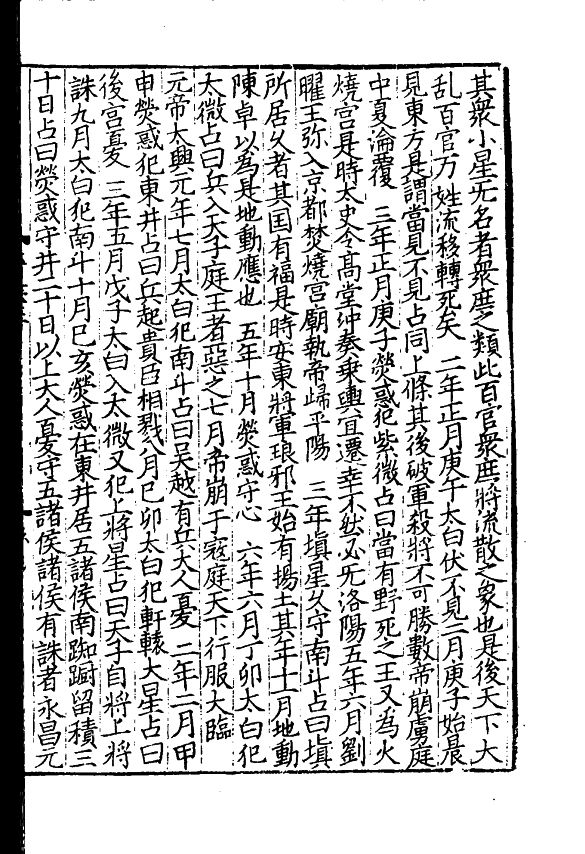 其衆小星无名者衆庶之類此百官衆庶將流散之象也是後天下大
乱百官万姓流移轉死矣 二年正月庚午太白伏不見二月庚子始晨
見東方是謂當見不見占同上條其後破軍殺將不可勝數帝崩虜庭
中夏淪覆 三年正月庚子熒惑犯紫微占曰當有野死之王又為火
燒宫是時太史令髙堂冲奏乘輿宜遷幸不然必无洛陽五年六月劉
曜王弥入京都焚燒宫廟執帝歸平陽 三年塡星乆守南斗占曰塡
所居乆者其国有福是時安東將軍琅邪王始有揚土其年十一月地動
陳卓以為是地動應也 五年十月熒惑守心 六年六月丁卯太白犯
太微占曰兵入天子庭王者惡之七月帝崩于寇庭天下行服大臨
元帝太興元年七月太白犯南斗占曰吴越有兵大人憂 二年二月甲
申熒惑犯東井占曰兵起貴臣相戮八月己卯太白犯軒轅大星占曰
後宫憂 三年五月戊子太白入太微又犯上將星占曰天子自將上將
誅九月太白犯南斗十月己亥熒惑在東井居五諸侯南踟蹰留積三
十日占曰熒惑守井二十日以上大人憂守五諸侯諸侯有誅者永昌元